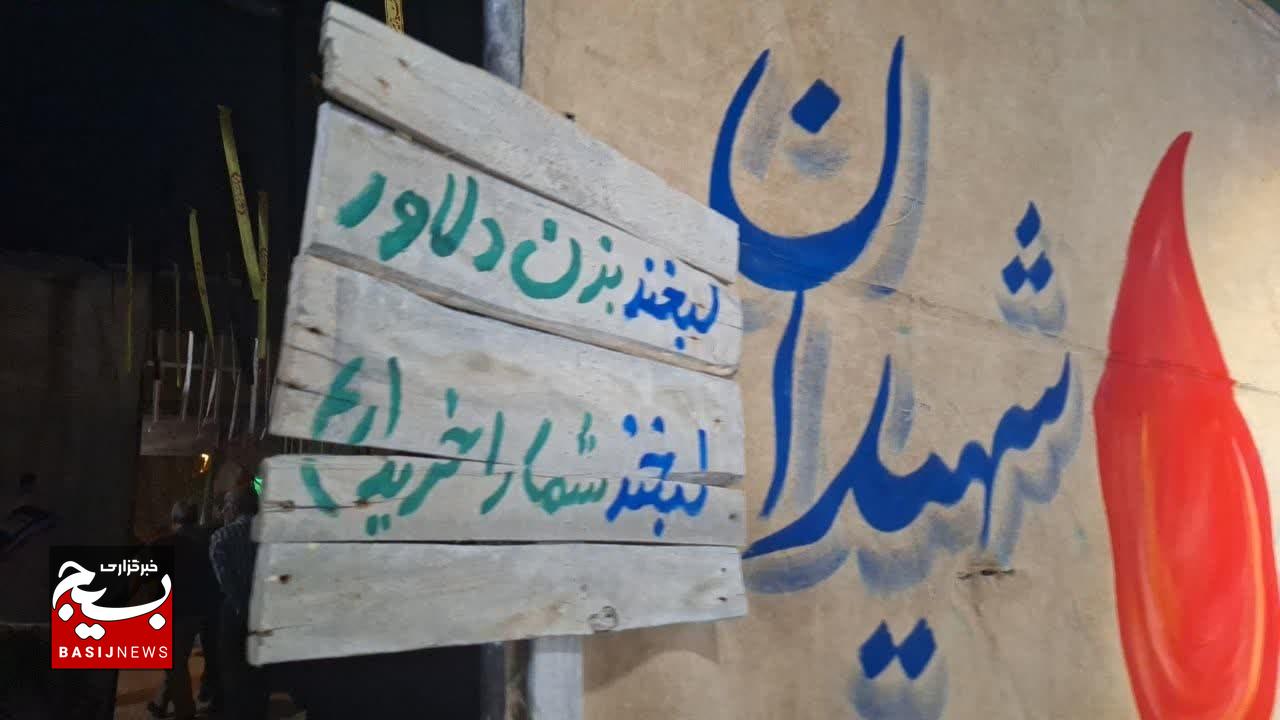 شهیدان
لبخند بزن دلاور
لبخند شما را خریداریم
خبرگزاری
بسیج
BASIJNEWS